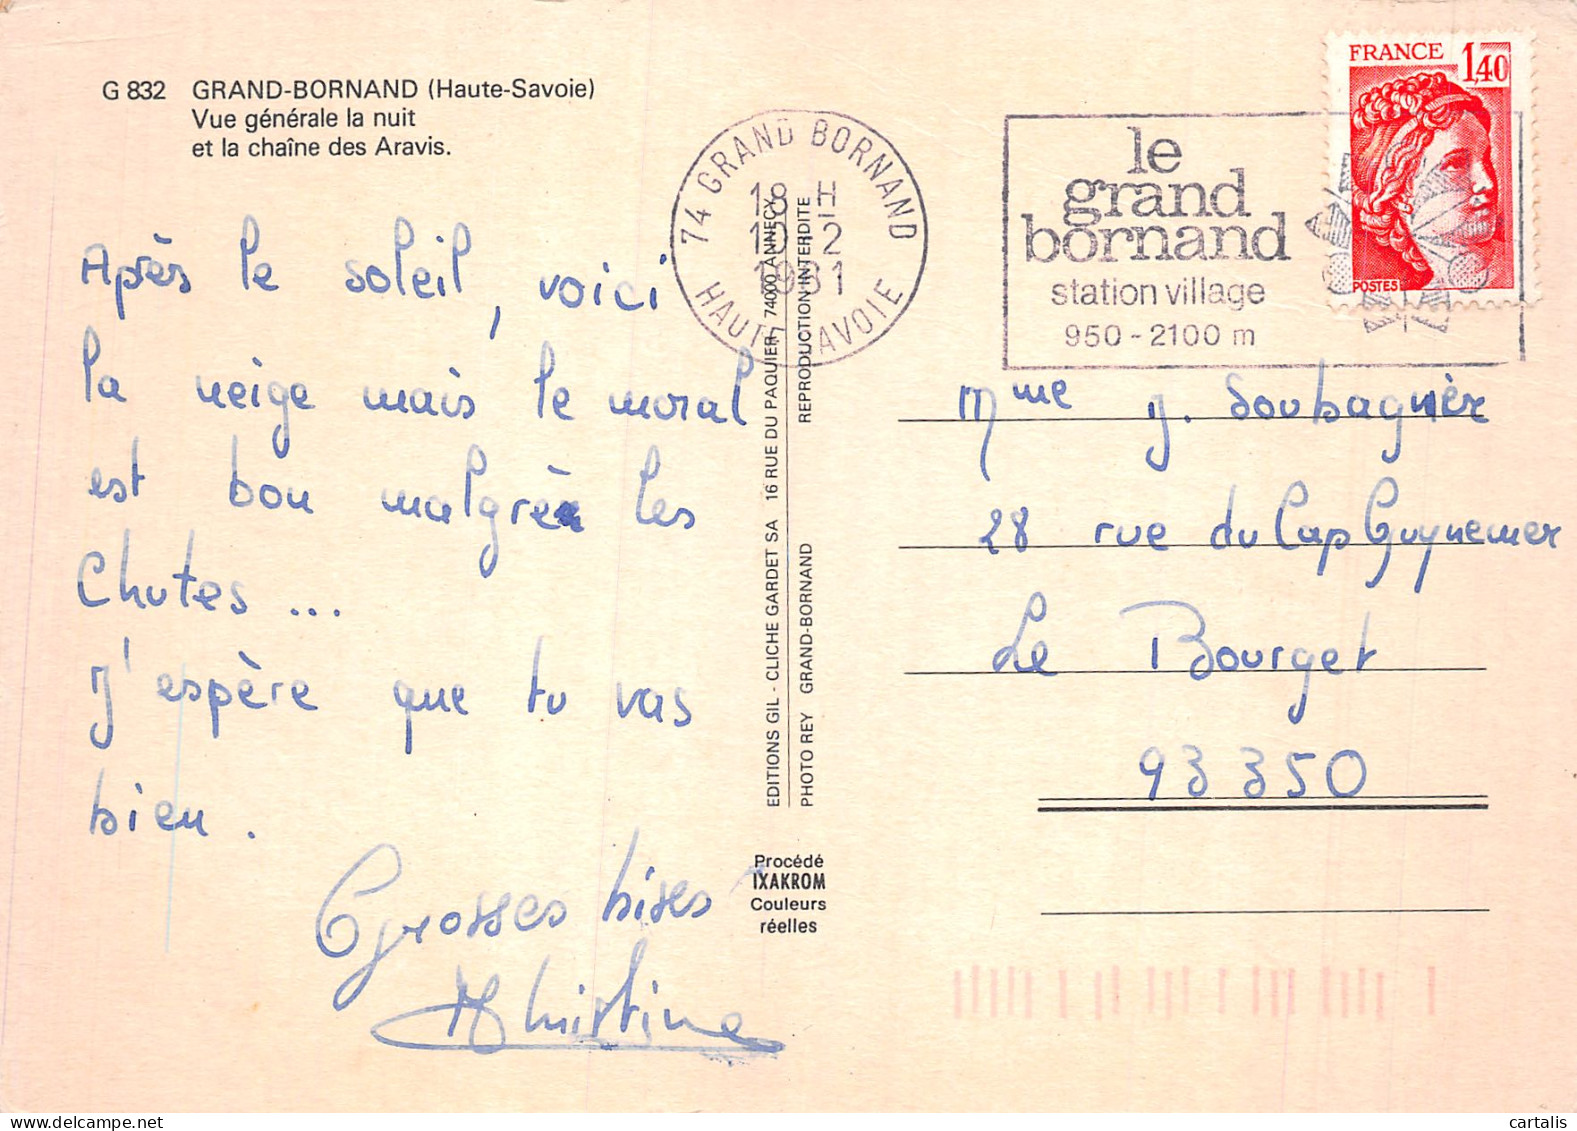 G 832 GRAND-BORNAND (Haute-Savoie)
Vue générale la nuit
et la chaîne des Aravis.
Après le soleil, voici
la neige mais le moral
est bon malgré les
Chutes ...
J'espère que tu vas
bien.
Grosses bises
Christine
EDITIONS GIL - CLICHE GARDET SA 16 RUE DU PAQUIER, 74000 ANNECY
PHOTO REY GRAND-BORNAND REPRODUCTION INTERDITE
Procédé
IXAKROM
Couleurs
réelles
74 GRAND BORNAND
18 H
-2
1981
HAUTE SAVOIE
le
grand
bornand
station village
950 - 2100 m
FRANCE 1,40
POSTES
Mme J. Soubagnèr
28 rue du Cap Guynemer
Le Bourget
93350
cartalis